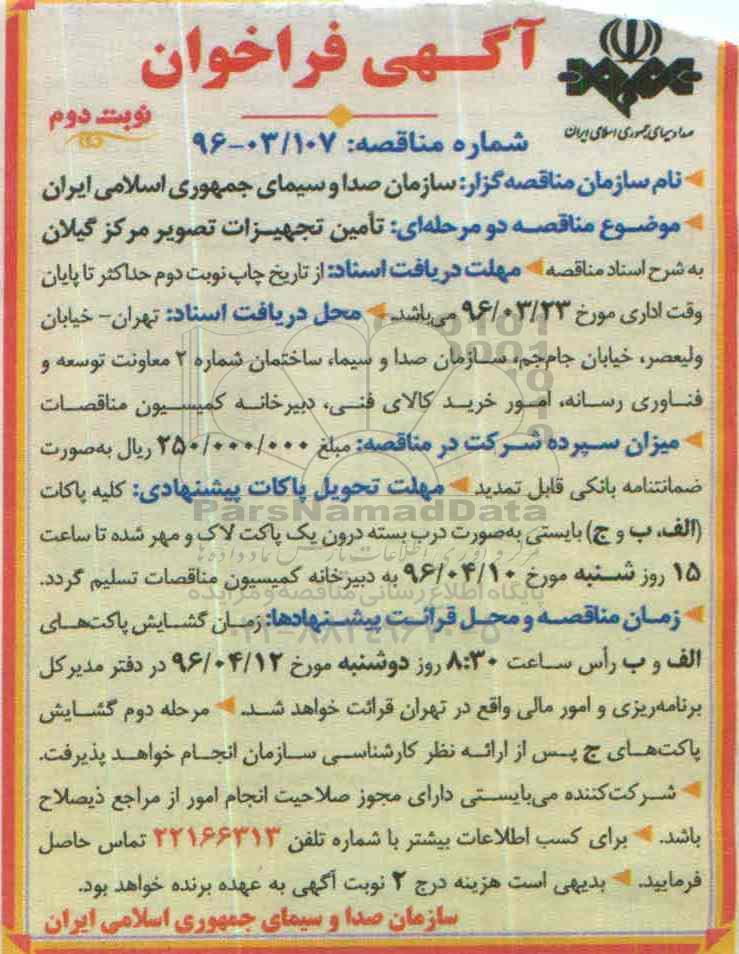 آگهی فراخوان
صدا و سیمای جمهوری اسلامی ایران
نوبت دوم
شماره مناقصه: ۹۶-۰۳/۱۰۷
نام سازمان مناقصه‌گزار: سازمان صدا و سیمای جمهوری اسلامی ایران
موضوع مناقصه دو مرحله‌ای: تأمین تجهیزات تصویر مرکز گیلان
به شرح اسناد مناقصه مهلت دریافت اسناد: از تاریخ چاپ نوبت دوم حداکثر تا پایان
وقت اداری مورخ ۹۶/۰۳/۲۳ می‌باشد. محل دریافت اسناد: تهران- خیابان
ولیعصر، خیابان جام‌جم، سازمان صدا و سیما، ساختمان شماره ۲ معاونت توسعه و
فناوری رسانه، امور خرید کالای فنی، دبیرخانه کمیسیون مناقصات
میزان سپرده شرکت در مناقصه: مبلغ ۲۵۰/۰۰۰/۰۰۰ ریال به‌صورت
ضمانتنامه بانکی قابل تمدید مهلت تحویل پاکات پیشنهادی: کلیه پاکات
ParsNamadData
(الف، ب و ج) بایستی به‌صورت درب بسته درون یک پاکت لاک و مهر شده تا ساعت
۱۵ روز شنبه مورخ ۹۶/۰۴/۱۰ به دبیرخانه کمیسیون مناقصات تسلیم گردد.
پایگاه اطلاع رسانی مناقصه و مزایده
زمان مناقصه و محل قرائت پیشنهادها: زمان گشایش پاکت‌های
الف و ب رأس ساعت ۸:۳۰ روز دوشنبه مورخ ۹۶/۰۴/۱۲ در دفتر مدیرکل
برنامه‌ریزی و امور مالی واقع در تهران قرائت خواهد شد. مرحله دوم گشایش
پاکت‌های ج پس از ارائه نظر کارشناسی سازمان انجام خواهد پذیرفت.
شرکت‌کننده می‌بایستی دارای مجوز صلاحیت انجام امور از مراجع ذیصلاح
باشد. برای کسب اطلاعات بیشتر با شماره تلفن ۲۲۱۶۶۳۱۳ تماس حاصل
فرمایید. بدیهی است هزینه درج ۲ نوبت آگهی به عهده برنده خواهد بود.
سازمان صدا و سیمای جمهوری اسلامی ایران